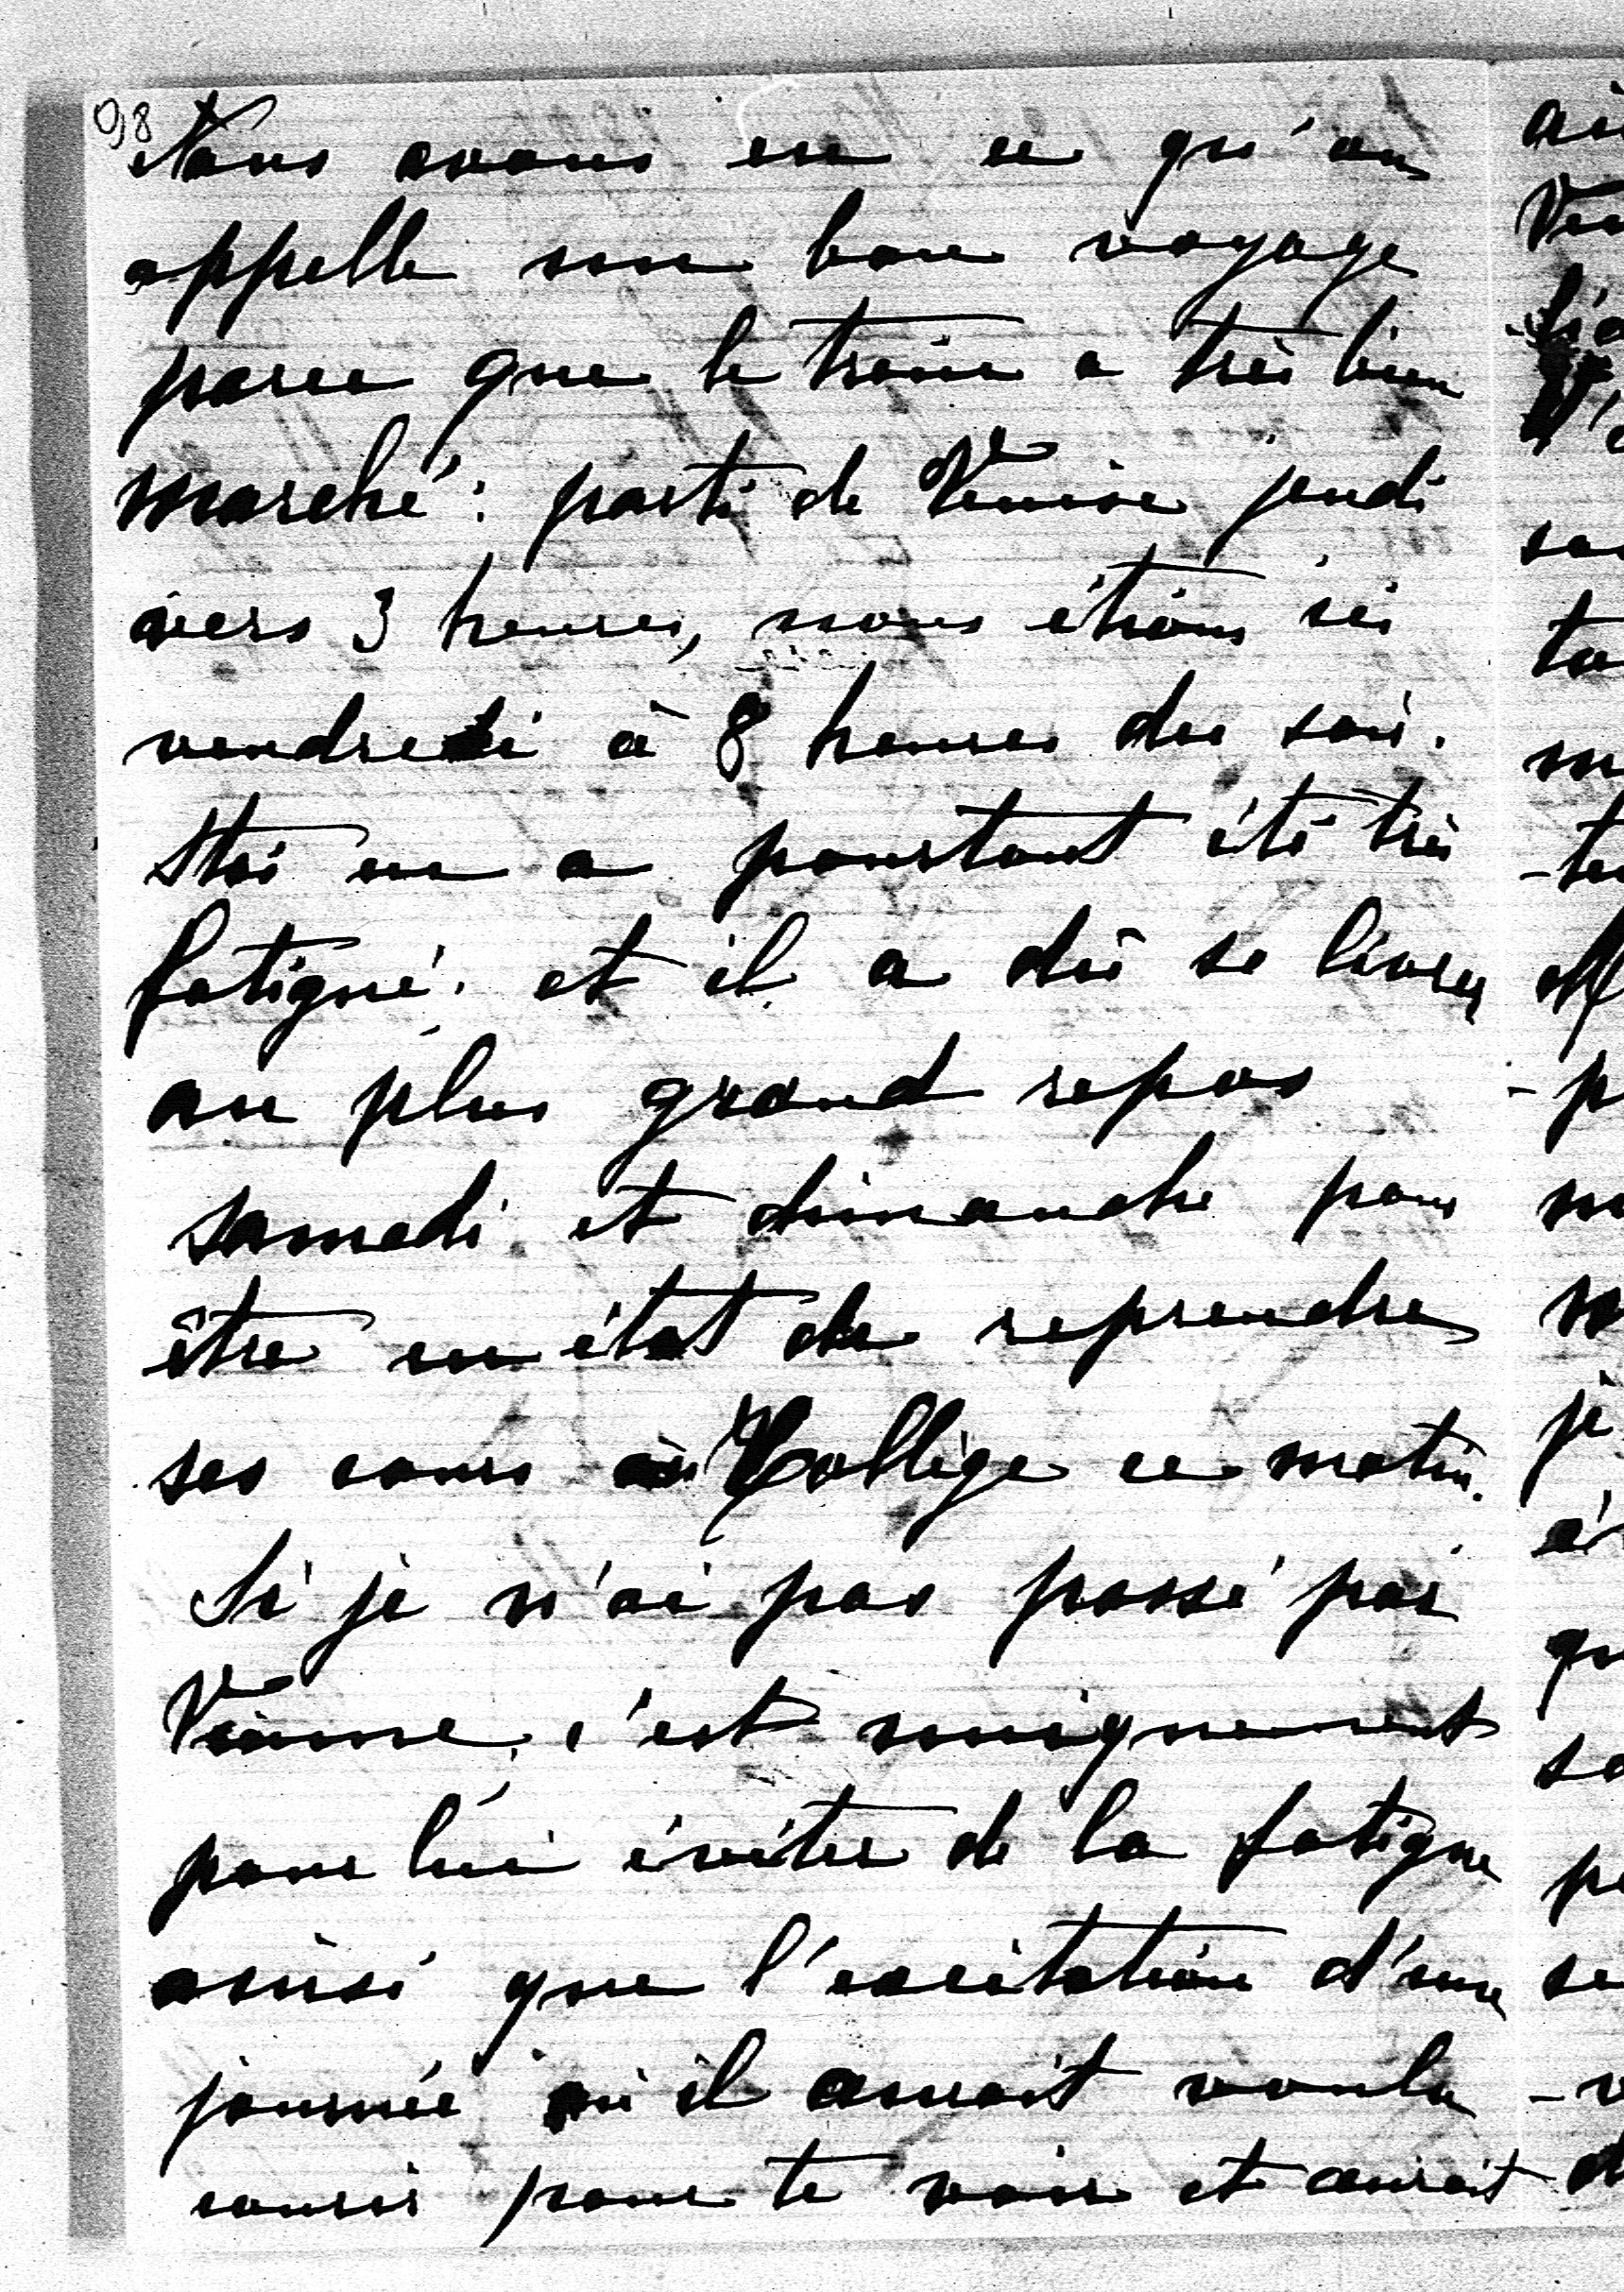 98
Nous avons eu ce qu'on
appelle un bon voyage
parce que le train a très bien
marché : parti de Venise jeudi
vers 3 heures, nous étions ici
vendredi à 8 heures du soir.
en a pourtant été très
fatigué. et il a dû se livrer
au plus grand repos
samedi et dimanche pour
être en état de reprendre
ses cours au Collège ce matin.
Si je n'ai pas passé par
Vienne, c'est uniquement
pour lui éviter de la fatigue
ainsi que l'excitation d'une
journée où il aurait voulu
courir pour te voir et aurait